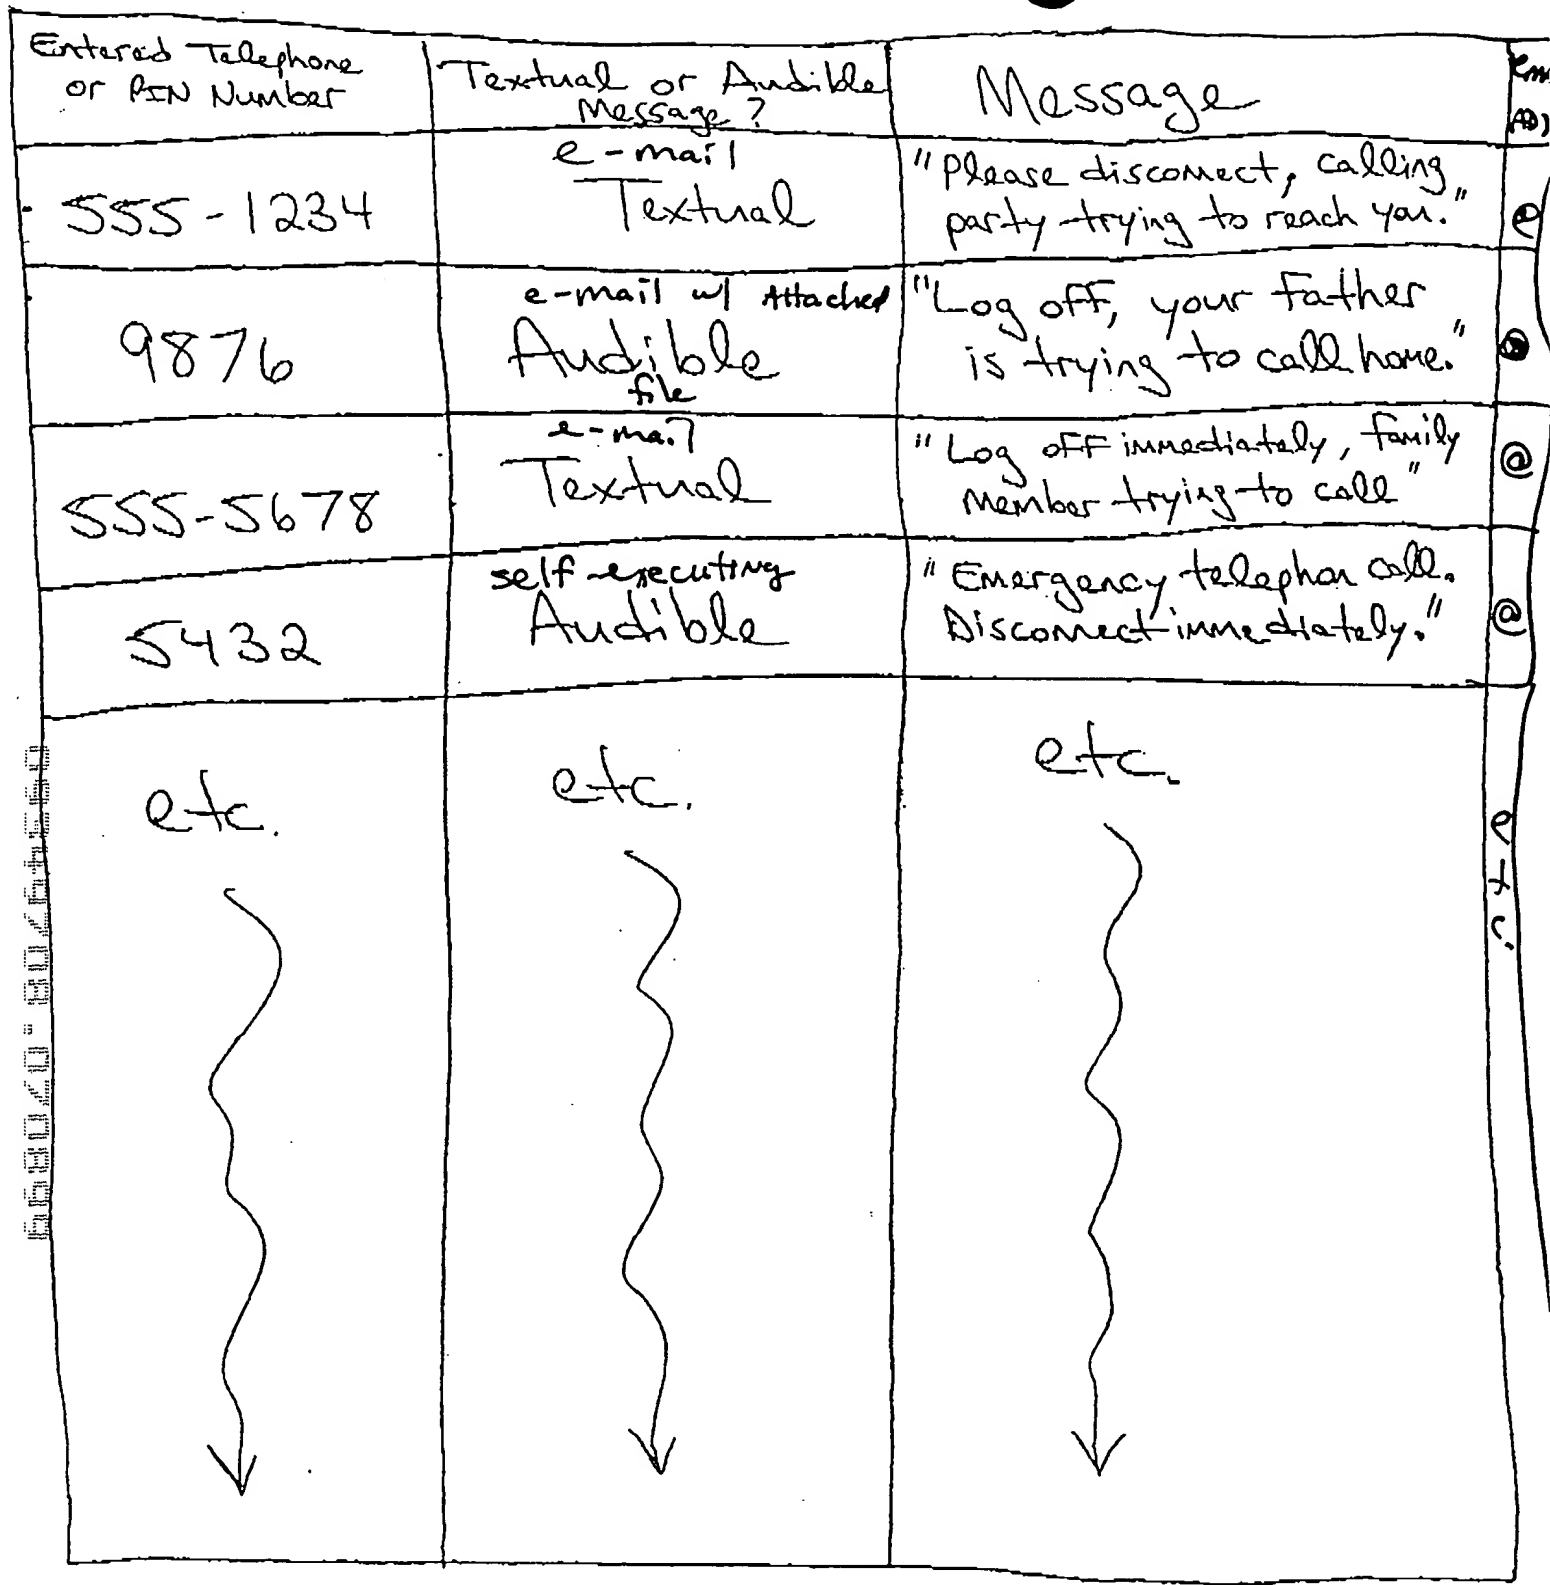 Entered Telephone
or PIN Number
Textual or Audible
Message?
Message
555-1234
e-mail
Textual
"Please disconnect, calling
party trying to reach you."
e
9876
e-mail w/ Attached
Audible
file
"Log off, your father
is trying to call home."
555-5678
e-mail
Textual
"Log off immediately, family
member trying to call"
@
5432
self-executing
Audible
"Emergency telephon call.
Disconnect immediately."
@
etc.
etc.
etc.
etc.